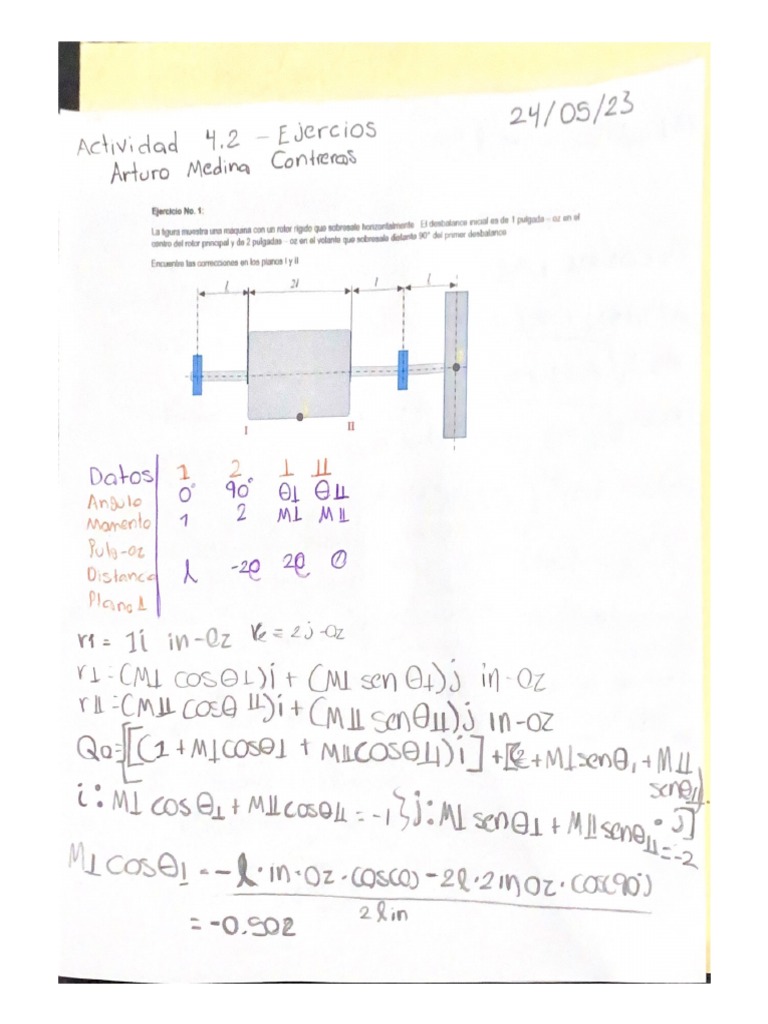 24/05/23
Actividad 4.2 - Ejercios
Arturo Medina Contreras
Ejercicio No. 1:
La figura muestra una máquina con un rotor rígido que sobresale horizontalmente. El desbalance inicial es de 1 pulgada – oz en el
centro del rotor principal y de 2 pulgadas – oz en el volante que sobresale distante 90° del primer desbalance
Encuentre las correcciones en los planos I y II
l 2l l l
I II
Datos 1 2 I II
Angulo 0° 90° θI θII
Momento 1 2 MI MII
Pulg-oz
Distanca l -2l 2l 0
Plano I
r1 = 1i in-Oz r2 = 2j -Oz
rI = (MI cosθI)i + (MI sen θI)j in-Oz
rII = (MII cosθII)i + (MII senθII)j in-oz
Qo=[[(1 + MIcosθI + MIIcosθII)i] + [2 + MIsenθI + MII
senθII
i: MI cosθI + MIIcosθII = -1 } j: MI senθI + MII senθII j]
= -2
MI cosθI = -l·in·Oz·cos(0) - 2l·2inOz·cos(90°)
2lin
= -0.50z